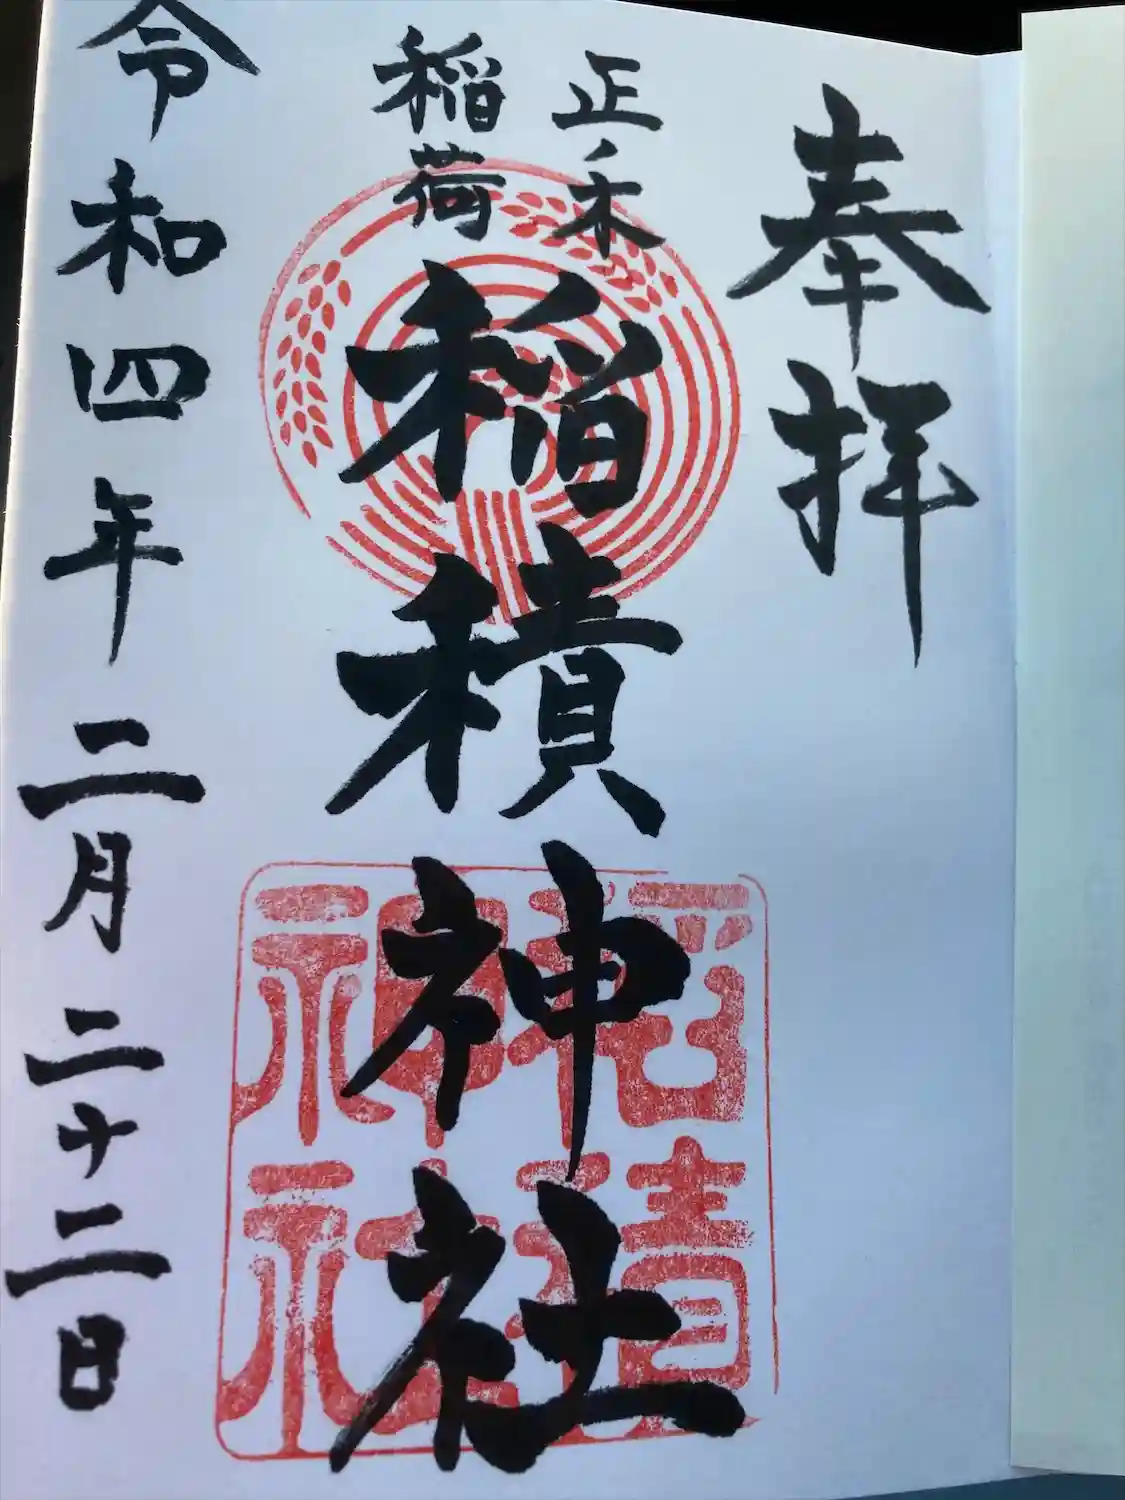 奉拝
正ノ木
稲荷
稲積神社
稲積神社
令和四年二月二十二日